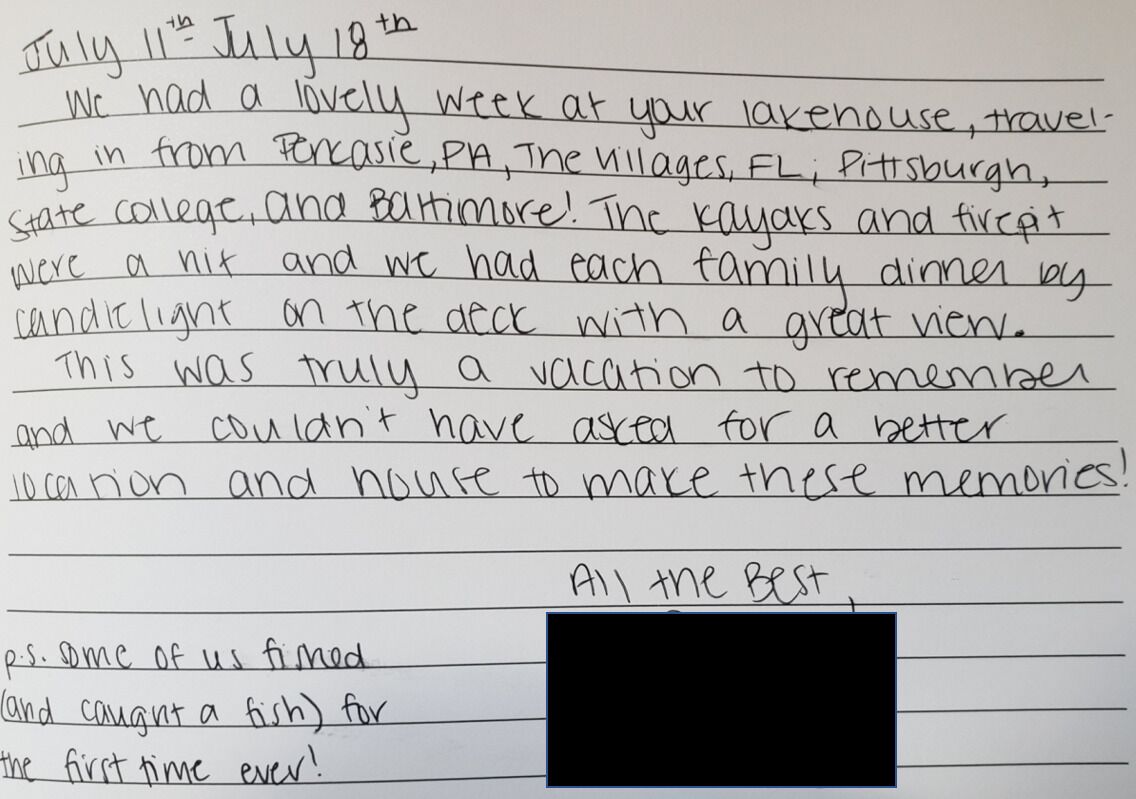 July 11th - July 18th
We had a lovely week at your lakehouse, travel-
ing in from Perkasie, PA, The Villages, FL; Pittsburgh,
State College, and Baltimore! The kayaks and firepit
were a hit and we had each family dinner by
candlelight on the deck with a great view.
This was truly a vacation to remember
and we couldn't have asked for a better
location and house to make these memories!
All the Best,
p.s. some of us fished
(and caught a fish) for
the first time ever!